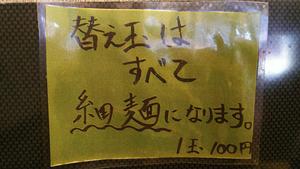 替え玉は
すべて
細麺になります。
1玉100円